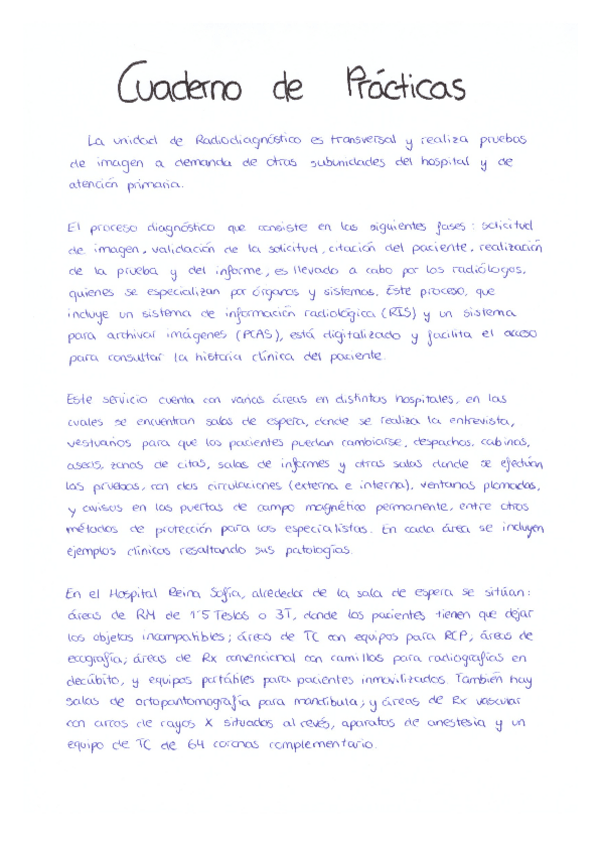 Cuaderno de Prácticas
La unidad de Radiodiagnóstico es transversal y realiza pruebas
de imagen a demanda de otras subunidades del hospital y de
atención primaria.
El proceso diagnóstico que consiste en las siguientes fases: solicitud
de imagen, validación de la solicitud, citación del paciente, realización
de la prueba y del informe, es llevado a cabo por los radiólogos,
quienes se especializan por órganos y sistemas. Este proceso, que
incluye un sistema de información radiológica (RIS) y un sistema
para archivar imágenes (PCAS), está digitalizado y facilita el acceso
para consultar la historia clínica del paciente.
Este servicio cuenta con varias áreas en distintos hospitales, en las
cuales se encuentran salas de espera, donde se realiza la entrevista,
vestuarios para que los pacientes puedan cambiarse, despachos, cabinas,
aseos, zonas de citas, salas de informes y otras salas donde se efectúan
las pruebas, con dos circulaciones (externa e interna), ventanas plomadas,
y avisos en las puertas de campo magnético permanente, entre otros
métodos de protección para los especialistas. En cada área se incluyen
ejemplos clínicos resaltando sus patologías.
En el Hospital Reina Sofía, alrededor de la sala de espera se sitúan:
áreas de RM de 1'5 Teslas o 3T, donde los pacientes tienen que dejar
los objetos incompatibles; áreas de TC con equipos para RCP; áreas de
ecografía; áreas de Rx convencional con camillas para radiografías en
decúbito, y equipos portátiles para pacientes inmovilizados. También hay
salas de ortopantomografía para mandíbula; y áreas de Rx vascular
con arcos de rayos X situados al revés, aparatos de anestesia y un
equipo de TC de 64 coronas complementario.